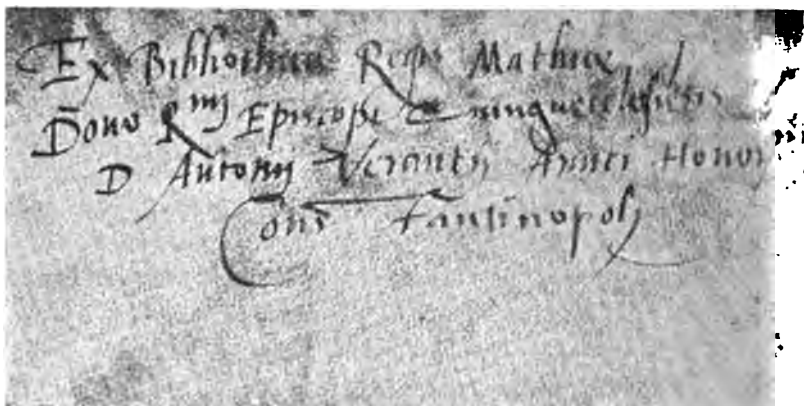 Ex Bibliotheca Regis Mathiæ
Dono R̃mij Episcopi Quinqueecclesiesis
D Antonij Verantij Amici Honor
Cons tantinopolj